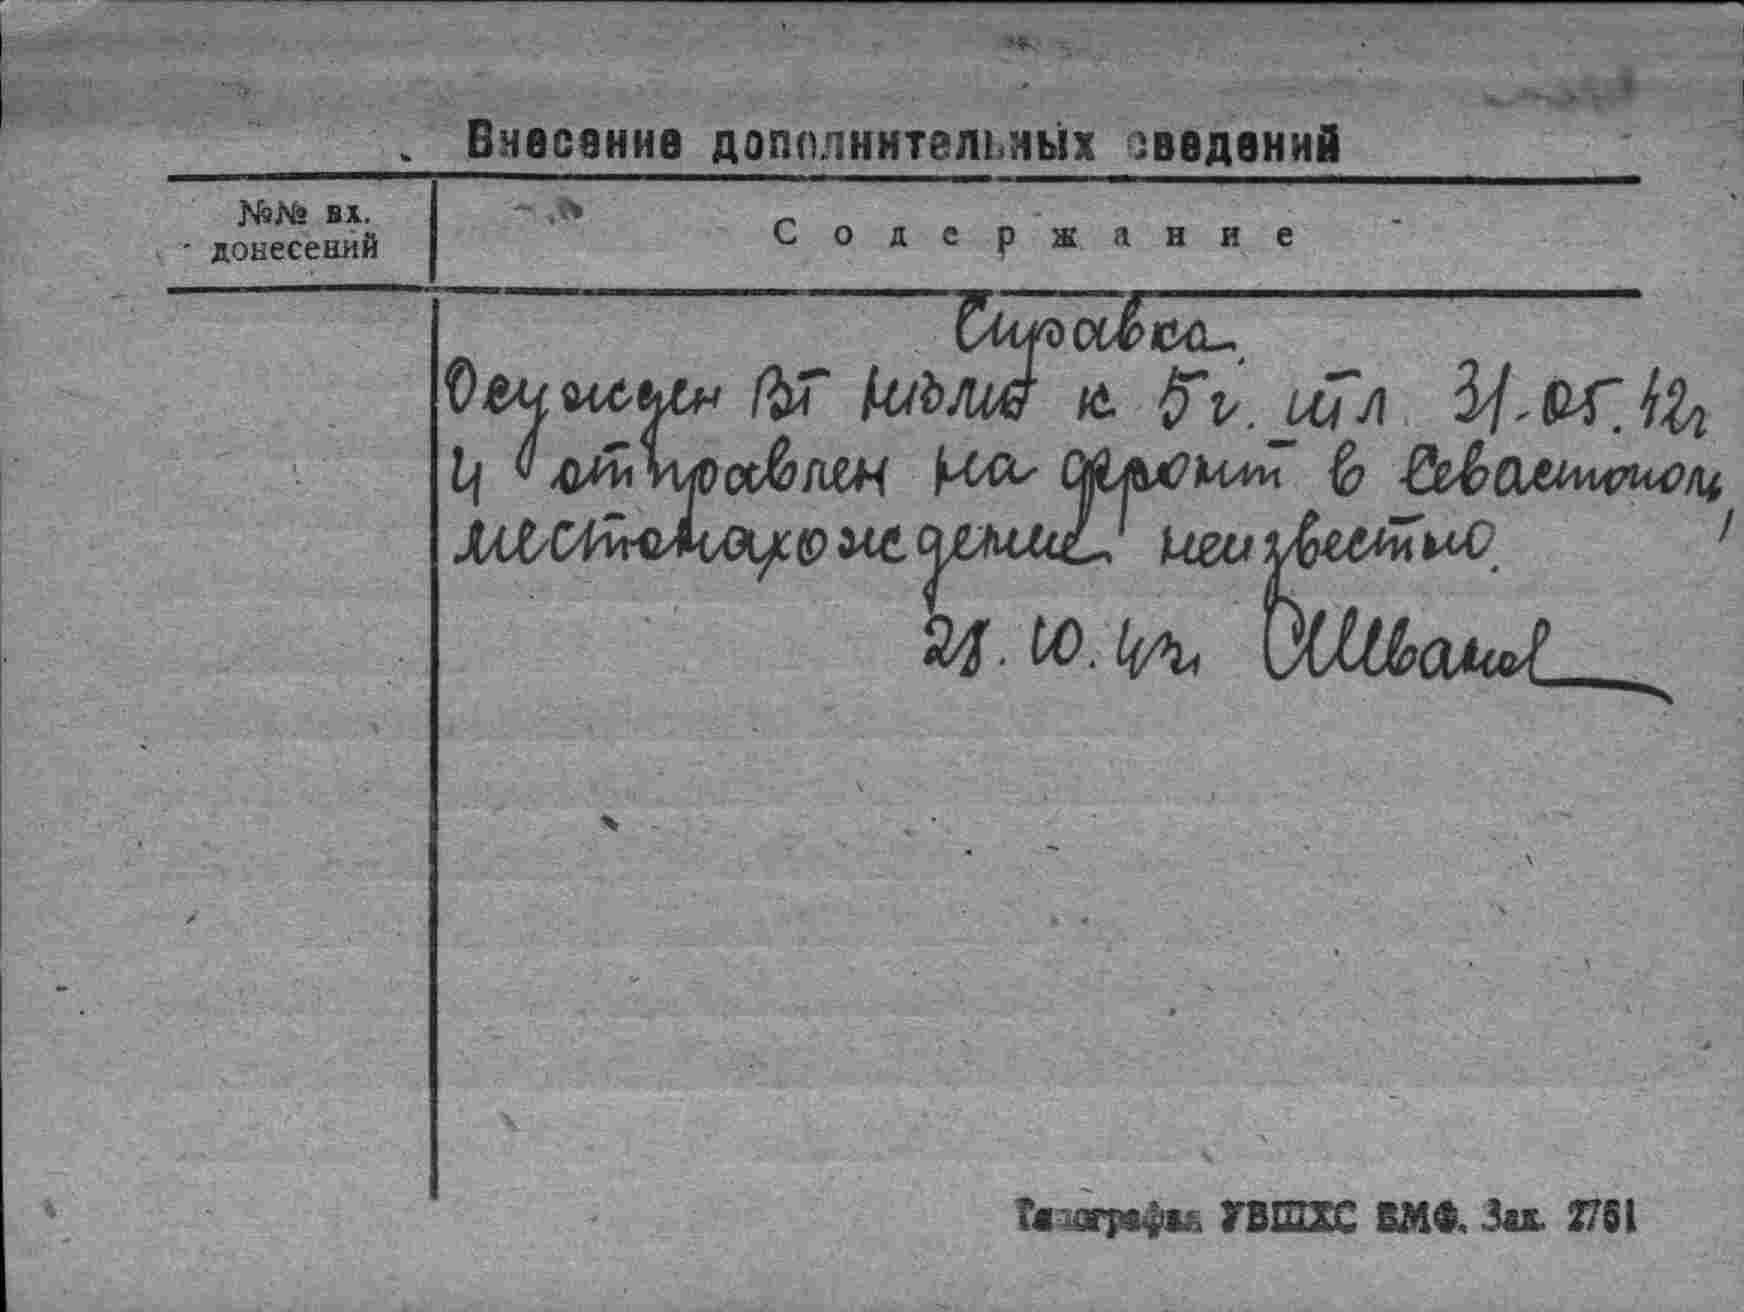 Внесение дополнительных сведений
№№ вх.
донесений
Содержание
Справка.
Осужден ВТ к 5 г. итл 31.05.42г
и отправлен на фронт в Севастополь,
местонахождение неизвестно.
28.10.43г.
Типография УВШХС ВМФ. Зак. 2761